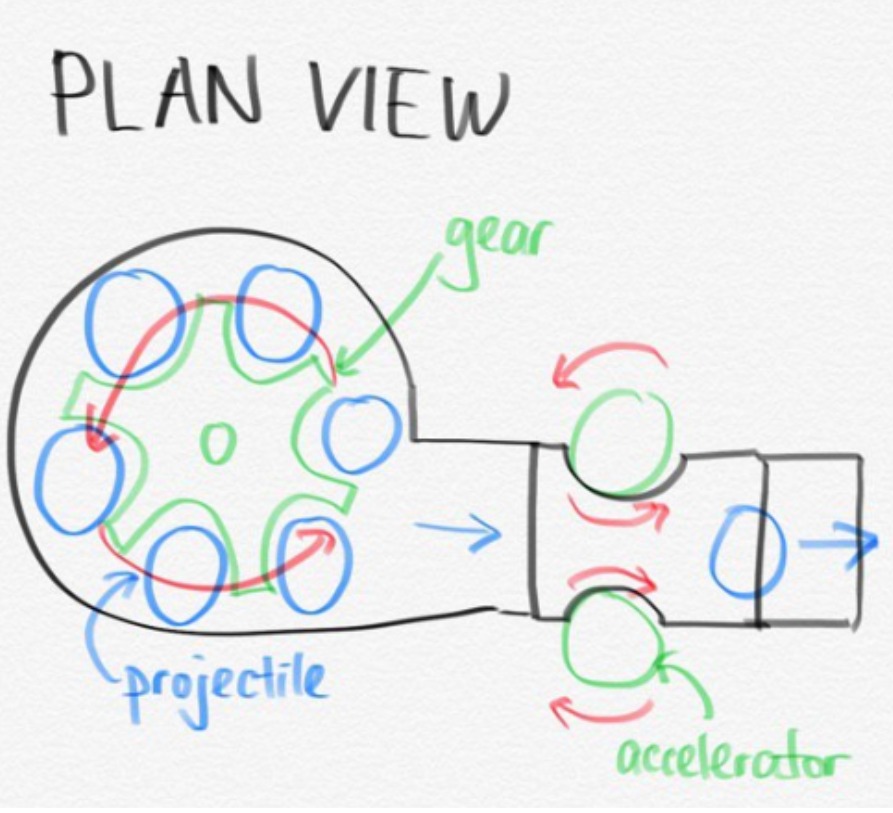 PLAN VIEW
gear
projectile
accelerator